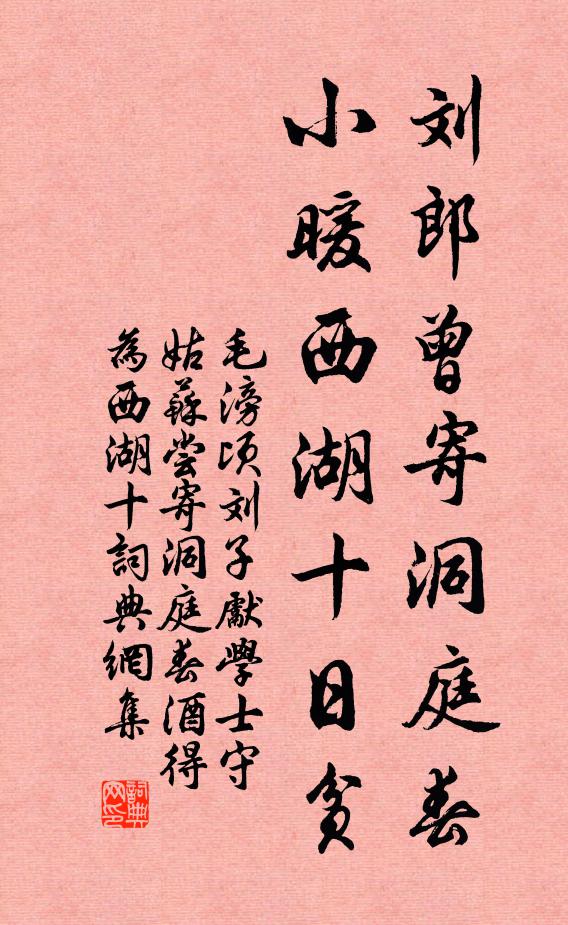 刘郎曾寄洞庭春
小暖西湖十日贫
毛滂顷刘子獻學士守
姑蘇尝寄洞庭春酒得
為西湖十詞典網集
詞典网印